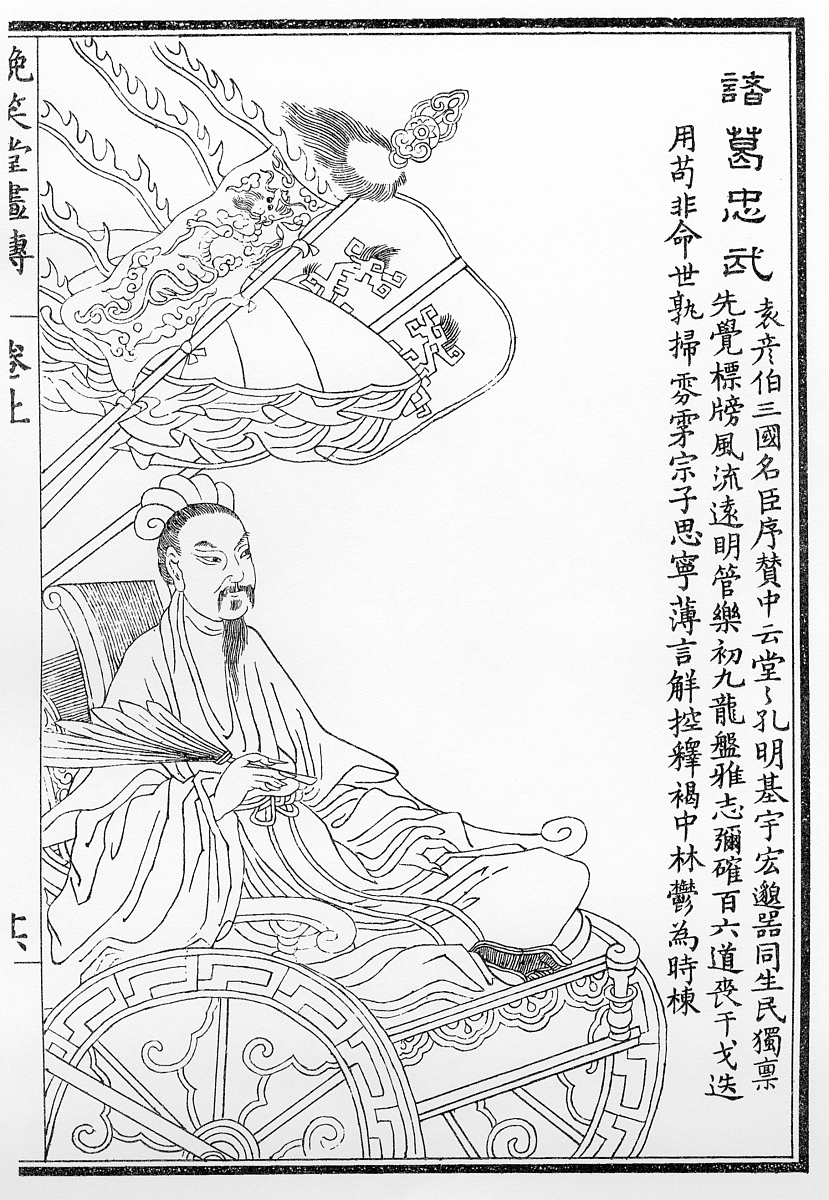 諸葛忠武
袁彥伯三國名臣序贊中云堂〻孔明基宇宏邈器同生民獨禀
先覺標牓風流遠明管樂初九龍盤雅志彌確百六道喪干戈迭
用苟非命世孰掃雰雺宗子思寧薄言解控釋褐中林鬱為時棟
晚笑堂畫傳 卷上